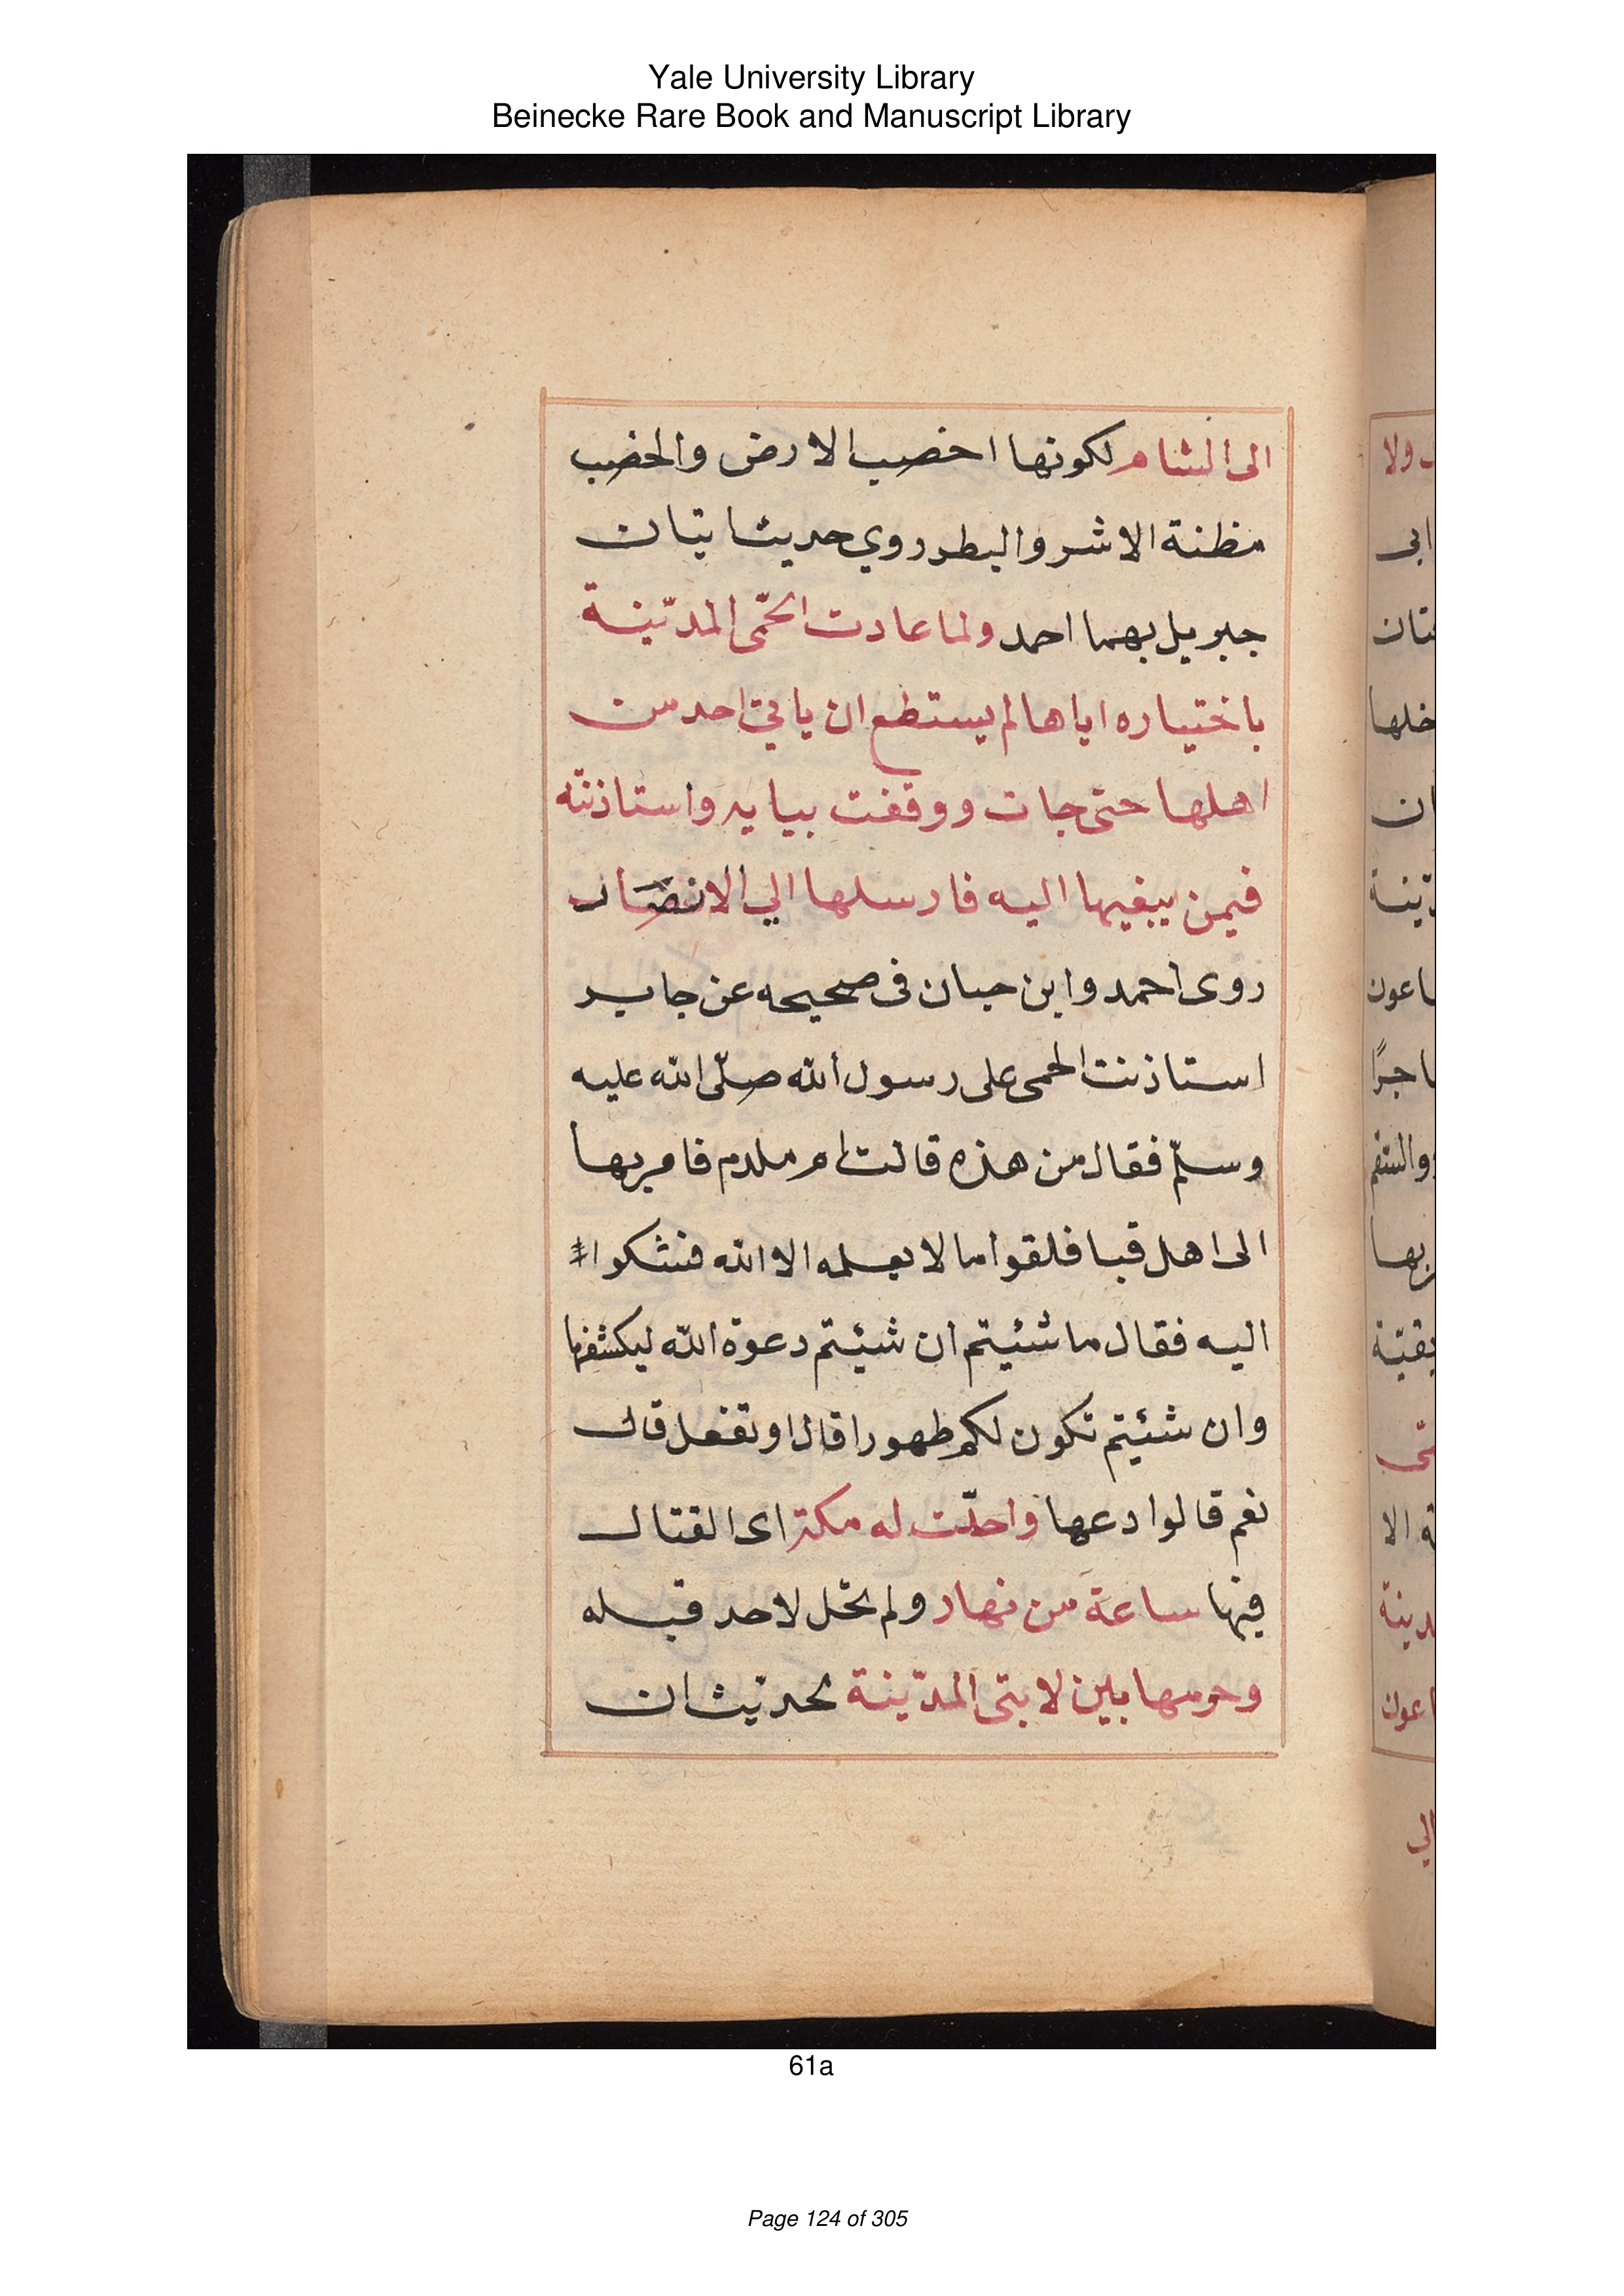 Yale University Library
Beinecke Rare Book and Manuscript Library
الى الشام لكونها اخصب الارض والخصب
مظنة الاشر والبطر روي حديثا تيان
جبريل بهما احمد ولما عادت الحّمى المدّينة
باختياره اياها لم يستطع ان ياتي احد من
اهلها حتى جات ووقفت ببابه واستاذنته
فيمن يبغيها اليه فارسلها الي الانصار
روى احمد وابن حبان فى صحيحه عن جابر
استاذنت الحمى على رسول الله صلّى الله عليه
وسلّم فقال من هذه قالت ام ملدم فامر بها
الى اهل قبا فلقوا ما لا يعلمه الا الله فشكوا
اليه فقال ما شئيتم ان شئيتم دعوة الله ليكشفها
وان شئيتم تكون لكم طهورا قالوا وتفعل قال
نعم قالوا دعها واحلّت له مكة اى القتال
فيها ساعة من نهار ولم تحل لاحد قبله
وحرمها بين لابتى المدّينة لحديث ان
61a
Page 124 of 305